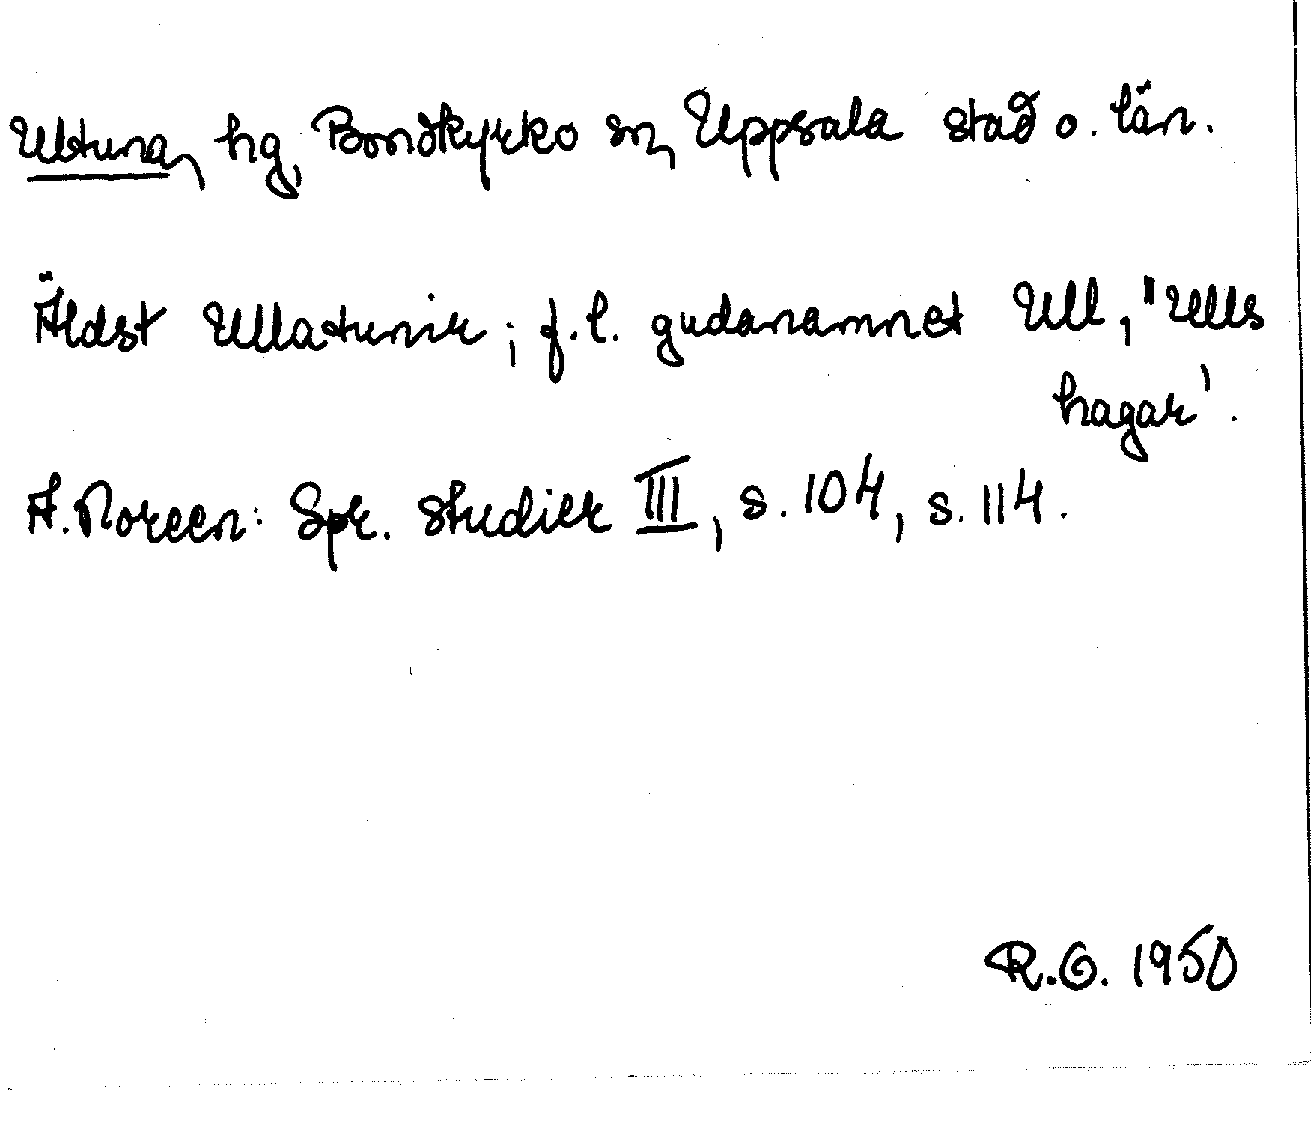 Ultuna, hg, Bondkyrko sn, Uppsala stad o. län.
Äldst Ullatunir; f.l. gudanamnet Ull, "Ulls
hagar'.
A. Noreen: Spr. studier III, s. 104, s. 114.
R.G. 1950